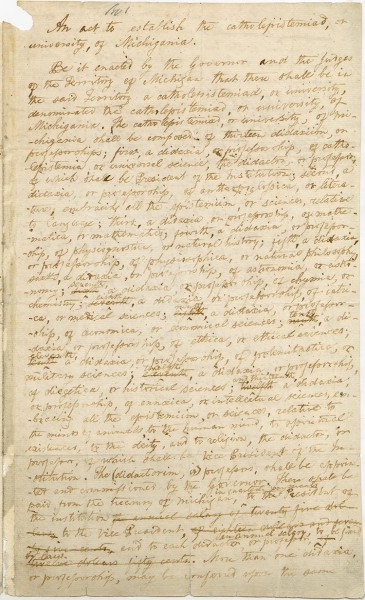 No 1
An act to establish the catholepistemiad, or
university, of Michigania.
Be it enacted by the Governor and the Judges
of the Territory of Michigan that there shall be in
the said Territory a catholepistemiad, or university,
denominated the catholepistemiad, or university, of
Michigania. The catholepistemiad, or university, of Mi-
chigania shall be composed of thirteen didaxiim, or
professorships; first, a didaxia, or professorship, of catho-
lepistemia, or universal science, the didactor, or professor,
of which shall be President of the institution; second, a
didaxia, or professorship, of anthropoglossica, or litera-
ture, embracing all the epistemiim, or sciences, relative
to language; third, a didaxia, or professorship, of mathe-
matica, or mathematics; fourth, a didaxia, or professor-
ship, of physiognostica, or natural history; fifth, a didaxia,
or professorship, of physiosophica, or natural philosophy;
sixth, a didaxia, or professorship, of astronomia, or astro-
nomy; seventh, a didaxia, or professorship, of chymia, or
chemistry; eighth, a didaxia, or professorship, of iatri-
ca, or medical sciences; ninth, a didaxia, or professor-
ship, of oeconomica, or economical sciences; tenth, a di-
daxia, or professorship, of ethica, or ethical sciences;
eleventh, a didaxia, or professorship, of polemitactica, or
military sciences; twelfth, a didaxia, or professorship,
of diegetica, or historical sciences; thirteenth, a didaxia,
or professorship, of ennoeica, or intellectual sciences, em-
bracing all the epistemiim, or sciences, relative to
the minds of animals, to the human mind, to spiritual
existences, to the deity, and to religion, the didactor, or
professor, of which shall be Vice President of the in-
stitution. The didactorim, or professors, shall be appoin-
ted and commissioned by the Governor. There shall be
paid, from the treasury of Michigan, to the President of
the institution an annual salary of twenty five dol-
lars to the Vice President,
and to each didactor or professor,
an annual salary, to be fixed
by law.
twelve dollars fifty cents. More than one didaxia,
or professorship, may be conferred upon the same